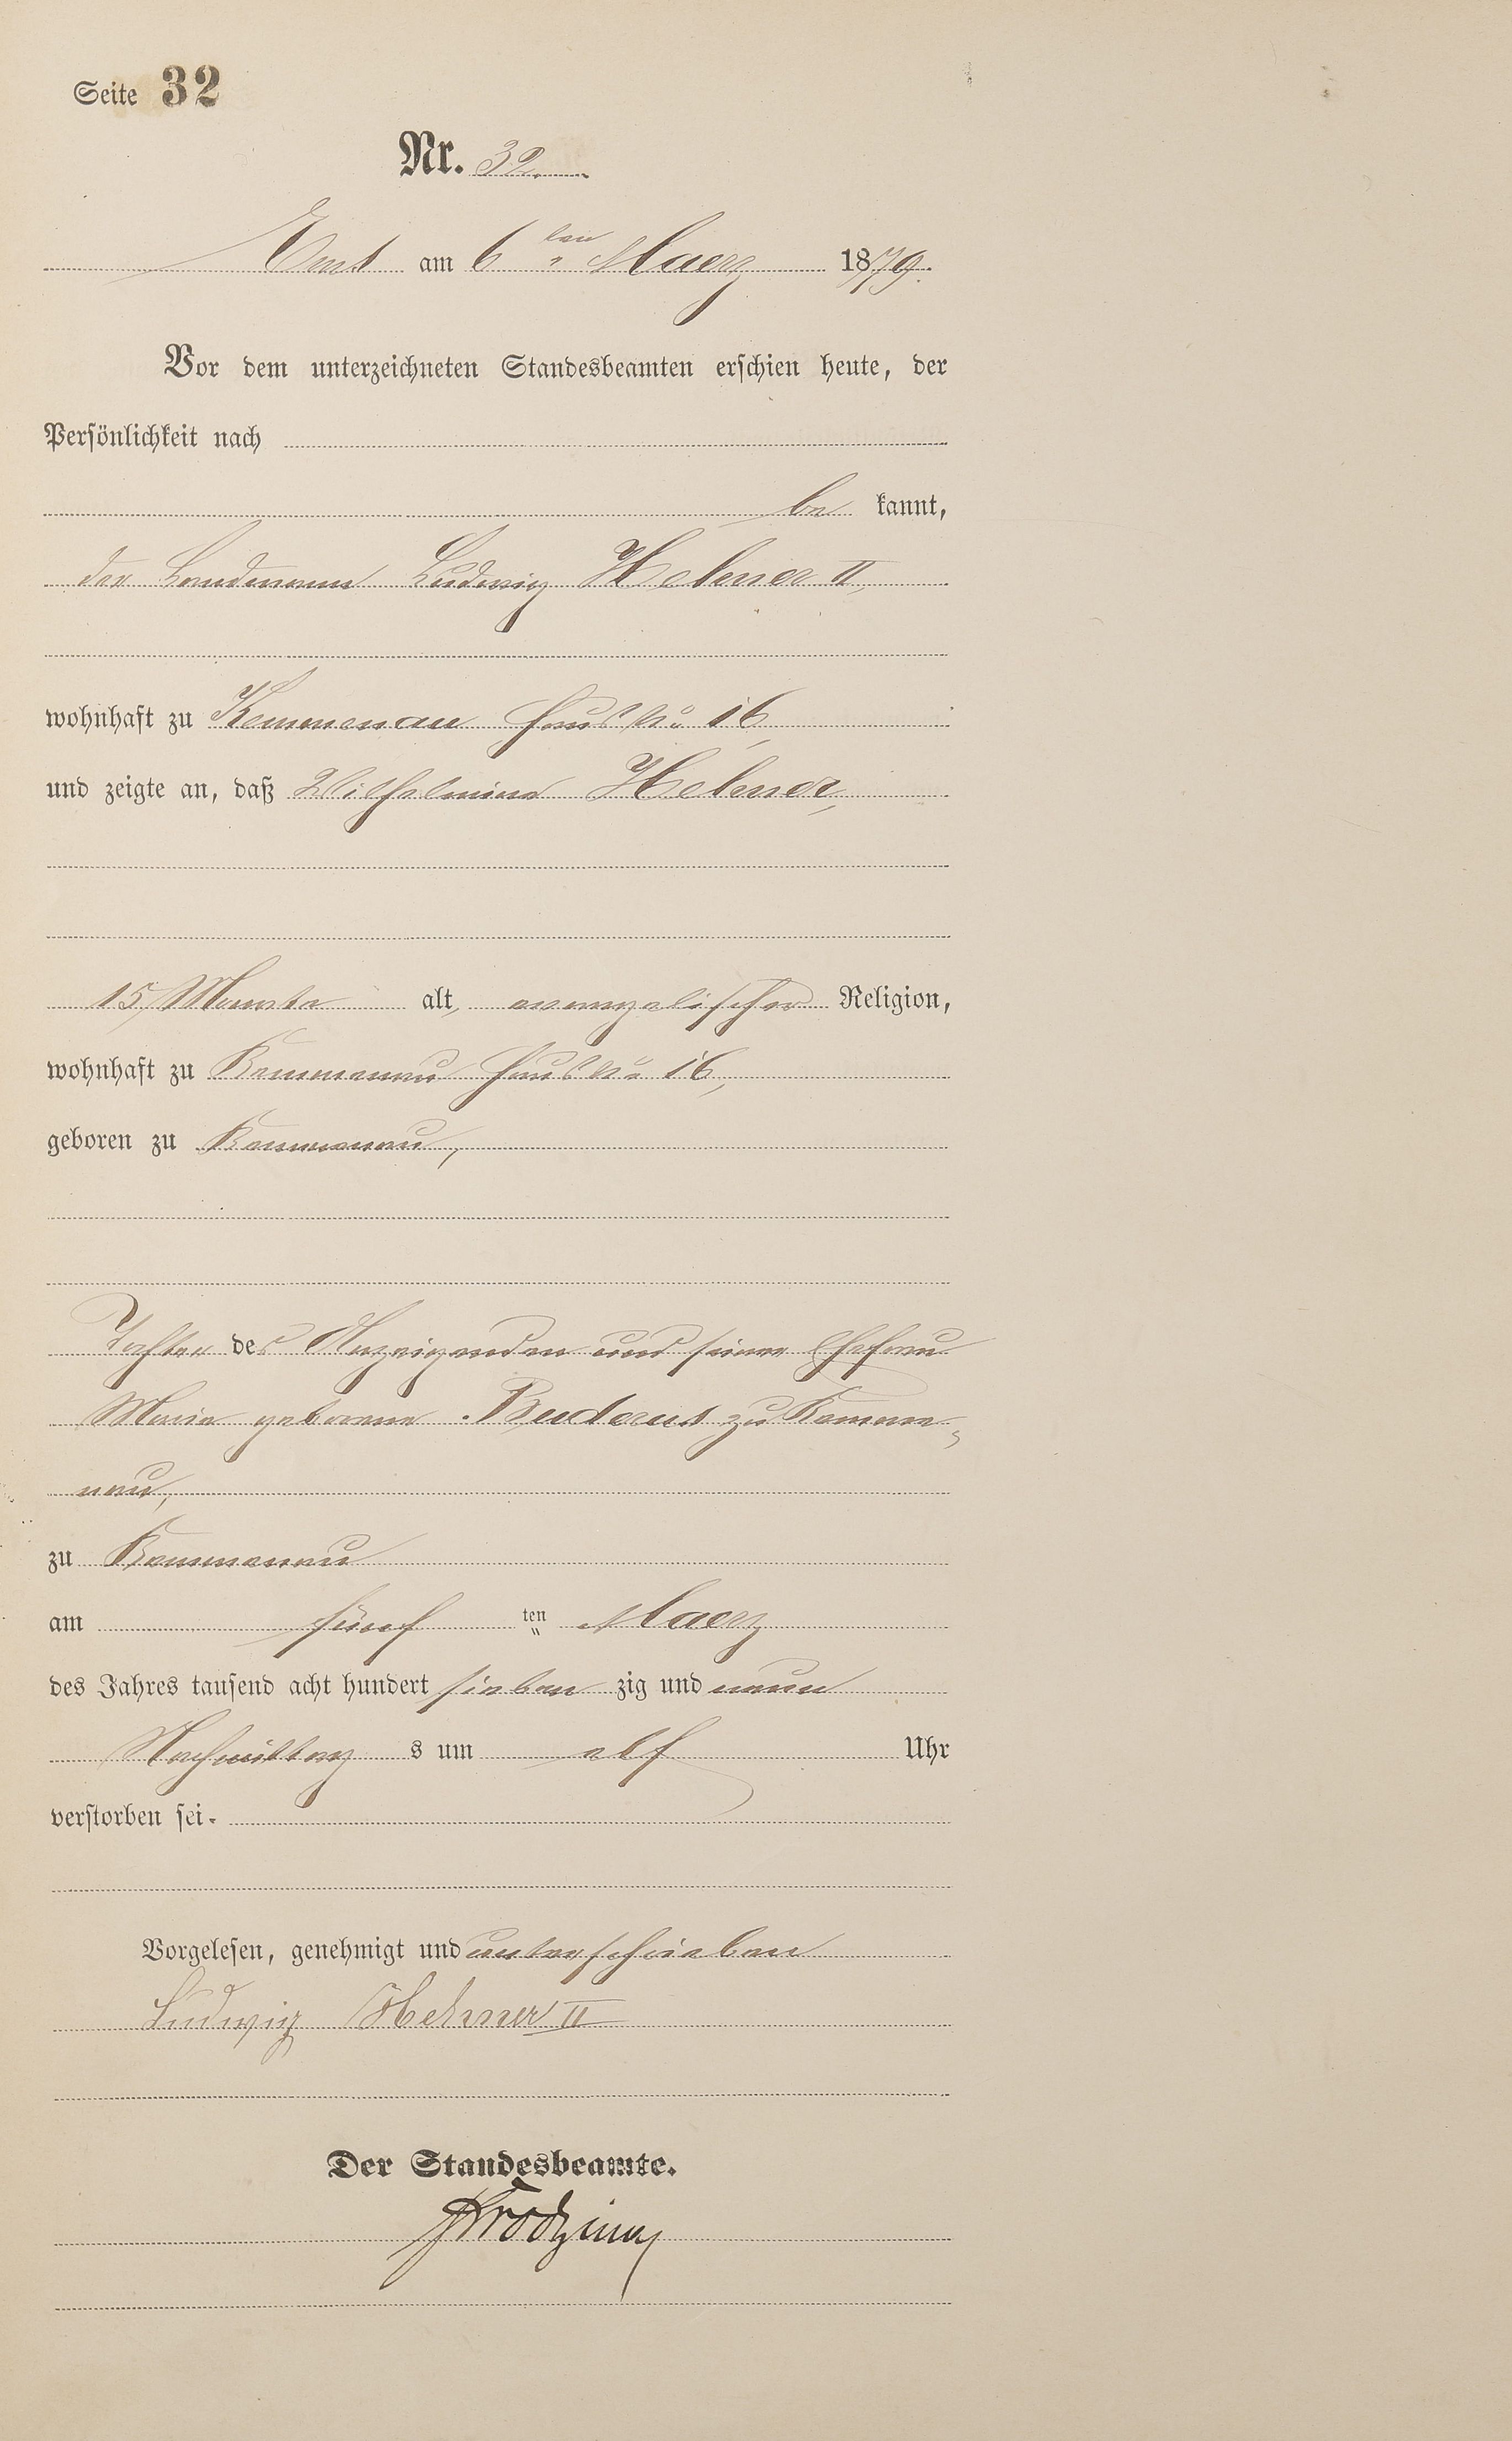 Seite 32
Nr. 32.
Ems am 6ten Maerz 1879.
Vor dem unterzeichneten Standesbeamten erschien heute, der
Persönlichkeit nach
be kannt,
der Landmann Ludwig Hehner II,
wohnhaft zu Kemmenau Haus No 16,
und zeigte an, daß Wilhelmine Hehner,
15 Monate alt, evangelischer Religion,
wohnhaft zu Kemmenau Haus No 16,
geboren zu Kemmenau,
Tochter des Anzeigenden und seiner Ehefrau
Marie geborene Buderus zu Kemme-
nau,
zu Kemmenau
am fünf ten Maerz
des Jahres tausend acht hundert sieben zig und neun
Nachmittag s um elf Uhr
verstorben sei.
Vorgelesen, genehmigt und unterschrieben
Ludwig Hehner II
Der Standesbeamte.